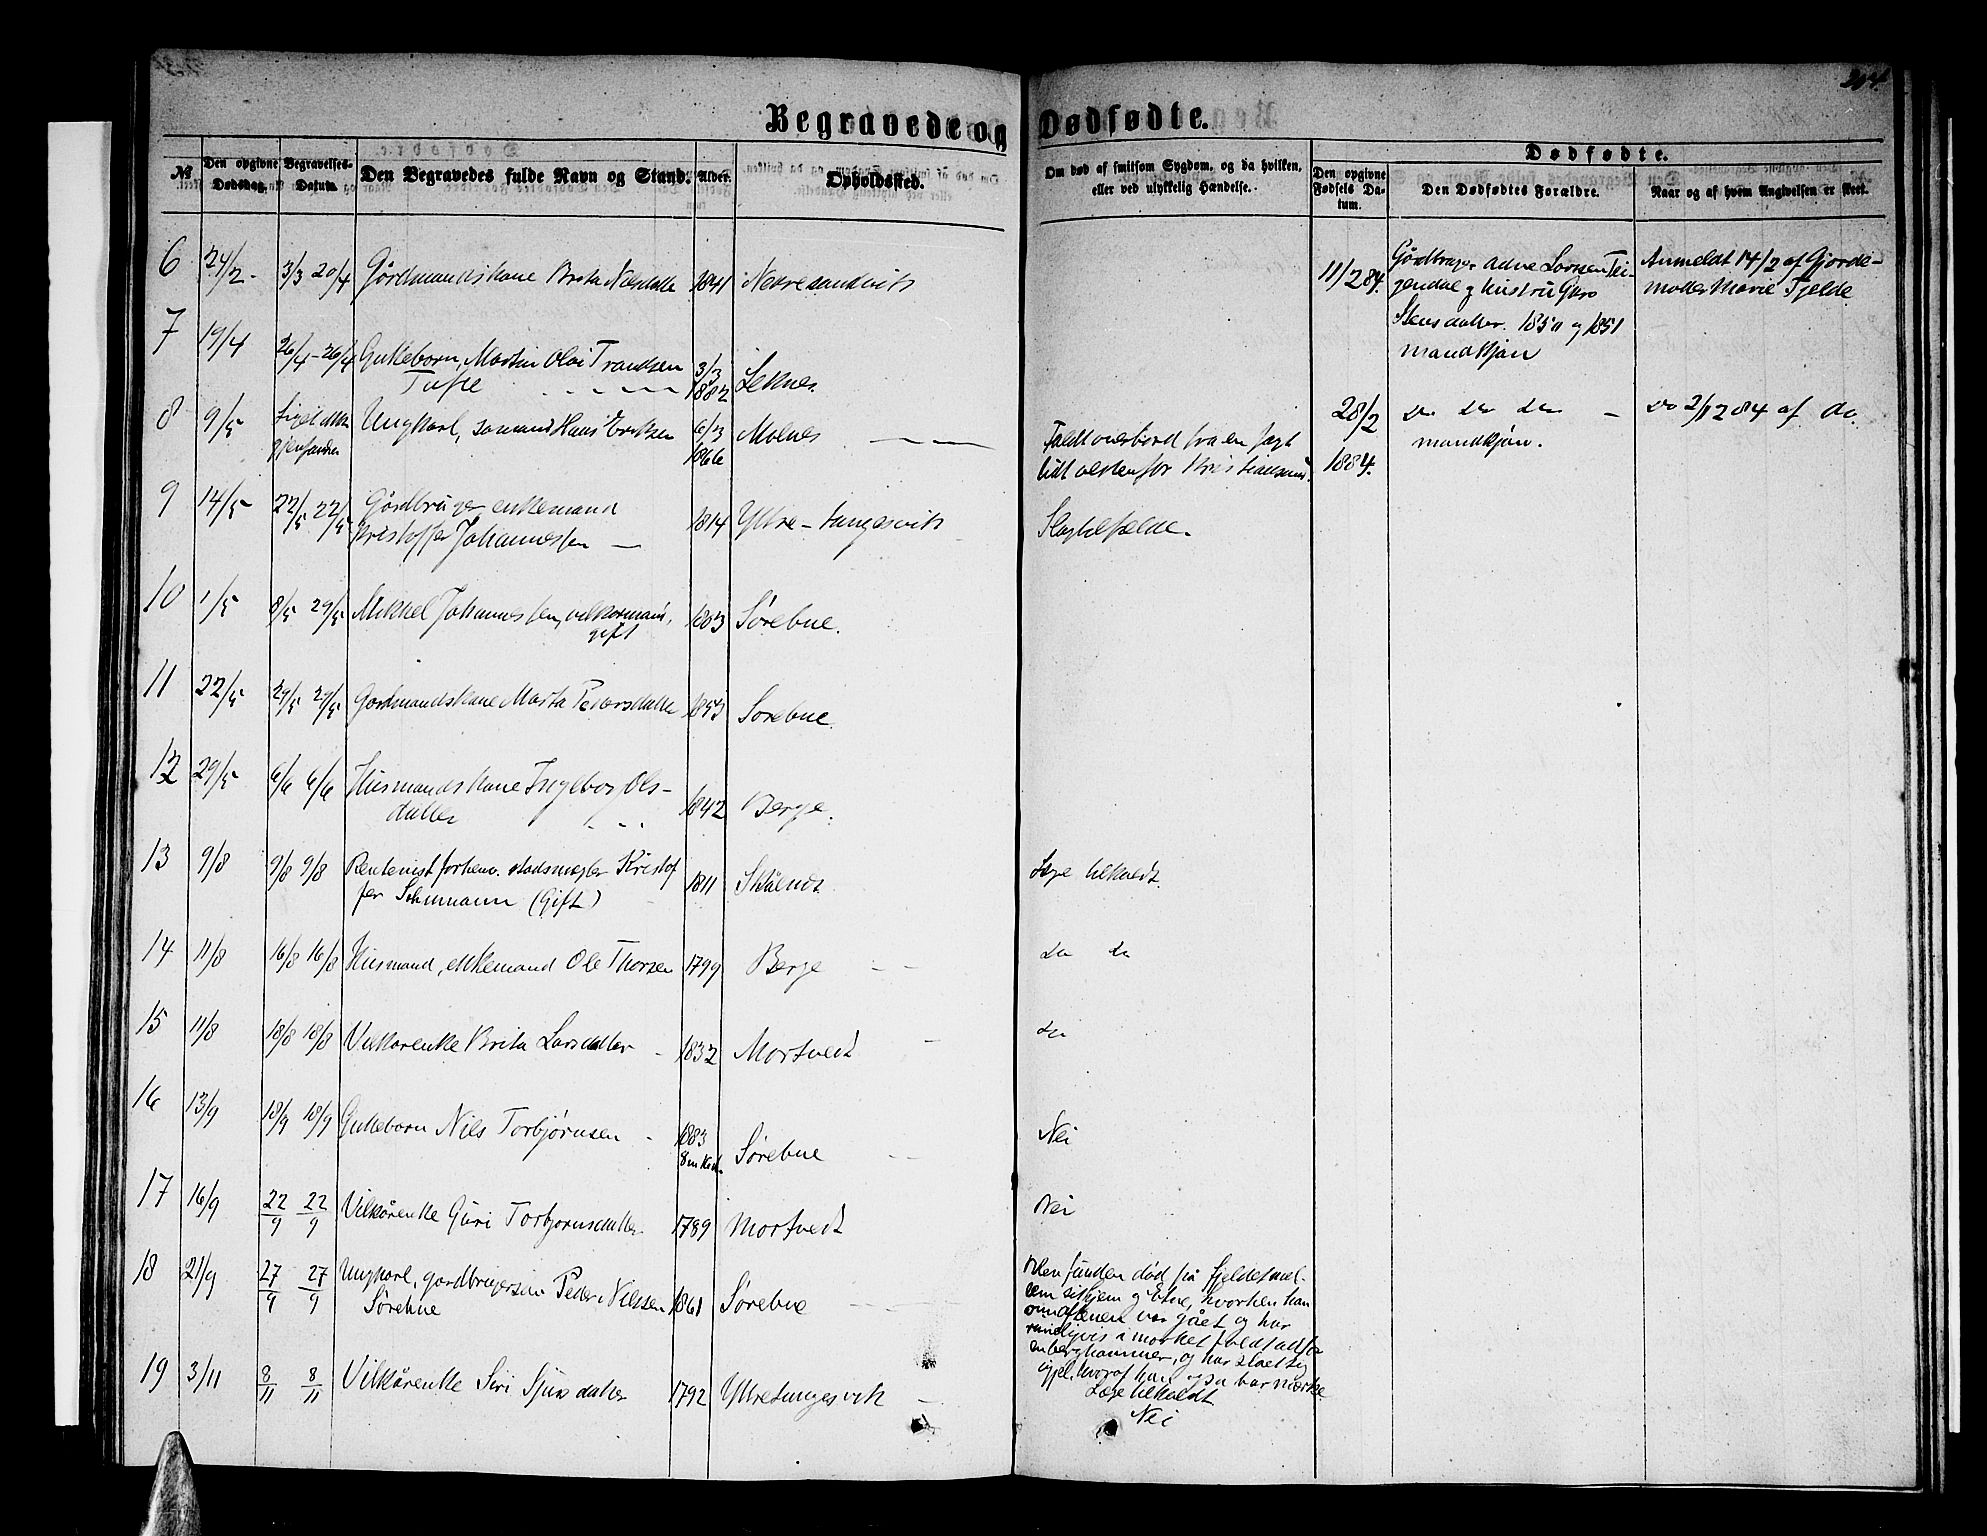 204.
Begravede og Dødfødte.
№
Den opgivne Dødsdag.
Begravelses-Datum.
Den Begravedes fulde Navn og Stand.
Alder.
Opholdssted.
Om død af smitsom Sygdom, og da hvilken,
eller ved ulykkelig Hændelse.
Dødfødte.
Den opgivne Fødsels Datum.
Den Dødfødtes Forældre.
Naar og af hvem Angivelsen er skeet.
6 24/2 3/3 20/4 Gårdmandskone Brita Nilsdatter 1841 Nedresandvik
11/2 84. Gårdbruger Adne Larssen Tei-
gendal og hustru Guro
Stensdatter. 1850 og 1851
mandkjøn
Anmeldt 14/2 af Gjorde-
moder Marie Fjelde
7 19/4 26/4 - 26/4 Gutteborn, Martin Olai Trondsen 3/3
Tufte 1882 Leknes.
8 9/5 Liget ikke Ungkarl, sømand Hans Eriksen 6/3 Molnes
gjenfundet 1866
Faldt overbord fra en jægt
lidt vestenfor Kristiansund.
28/2 do do do
1884. mandkjøn.
do 2/12 84 af do.
9 14/5 22/5 22/5 Gårdbruger, enkemand
Kristoffer Johannessen 1814 Ytre-tungesvik
Slagtilfælde.
10 1/5 8/5 29/5 Mikkel Johannessen, vilkormand, 1803 Sørebue.
gift
11 22/5 29/5 29/5 Gardmandskone Marta Pedersdatter 1853 Sørebue.
12 29/5 6/6 6/6 Husmandskone Ingeborg Ols-
datter 1842 Berge.
13 9/8 9/8 9/8 Rentenist forhenv. stadsmægler Kristof
fer Schumann (Gift) 1811 Skålnes.
Læge tilkaldt.
14 11/8 16/8 16/8 Husmand, enkemand Ole Thorsen 1799 Berge
do do
15 11/8 18/8 18/8 Vilkårenke Brita Larsdatter 1832 Mortvedt
do
16 13/9 18/9 18/9 Gutteborn Nils Torbjørnsen 1883
Sørebue
Nei
17 16/9 22/9 22/9 Vilkårenke Guri Torbjornsdatter 1789 Mortvedt
Nei
18 21/9 27/9 27/9 Ungkarl, gardbrugersøn Peder Nilssen 1861 Sørebue
Sørebue
Blev funden død på fjeldet mel-
lem sit hjem og Etne, hvorhen han
om aftenen var gået og har
rimeligvis i mørket faldt udfor
en berghammer, og har slaet sig
ihjel, hvoraf han også bar mærke
Læge tilkaldt
19 3/11 8/11 8/11 Vilkårenke Siri Sjursdatter 1792 Ytretungesvik
Nei